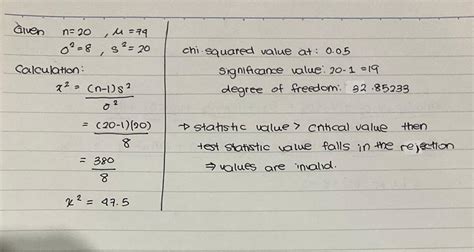 Given n=20 , μ=79
σ²=8 , s²=20
Calculation:
x² = (n-1)s²
σ²
= (20-1)(20)
8
= 380
8
x² = 47.5
chi-squared value at: 0.05
significance value: 20-1=19
degree of freedom: 32.85233
→ statistic value > critical value then
test statistic value falls in the rejection
⇒ values are invalid.